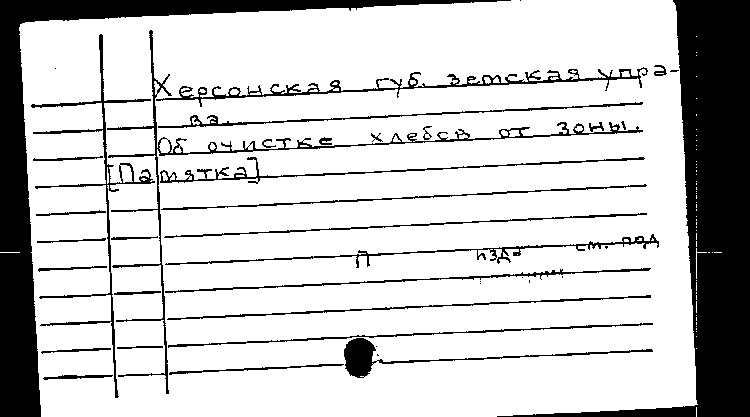 Херсонская губ. земская упра-
ва.
Об очистке хлебов от зоны.
[Памятка]
П изд. см. под